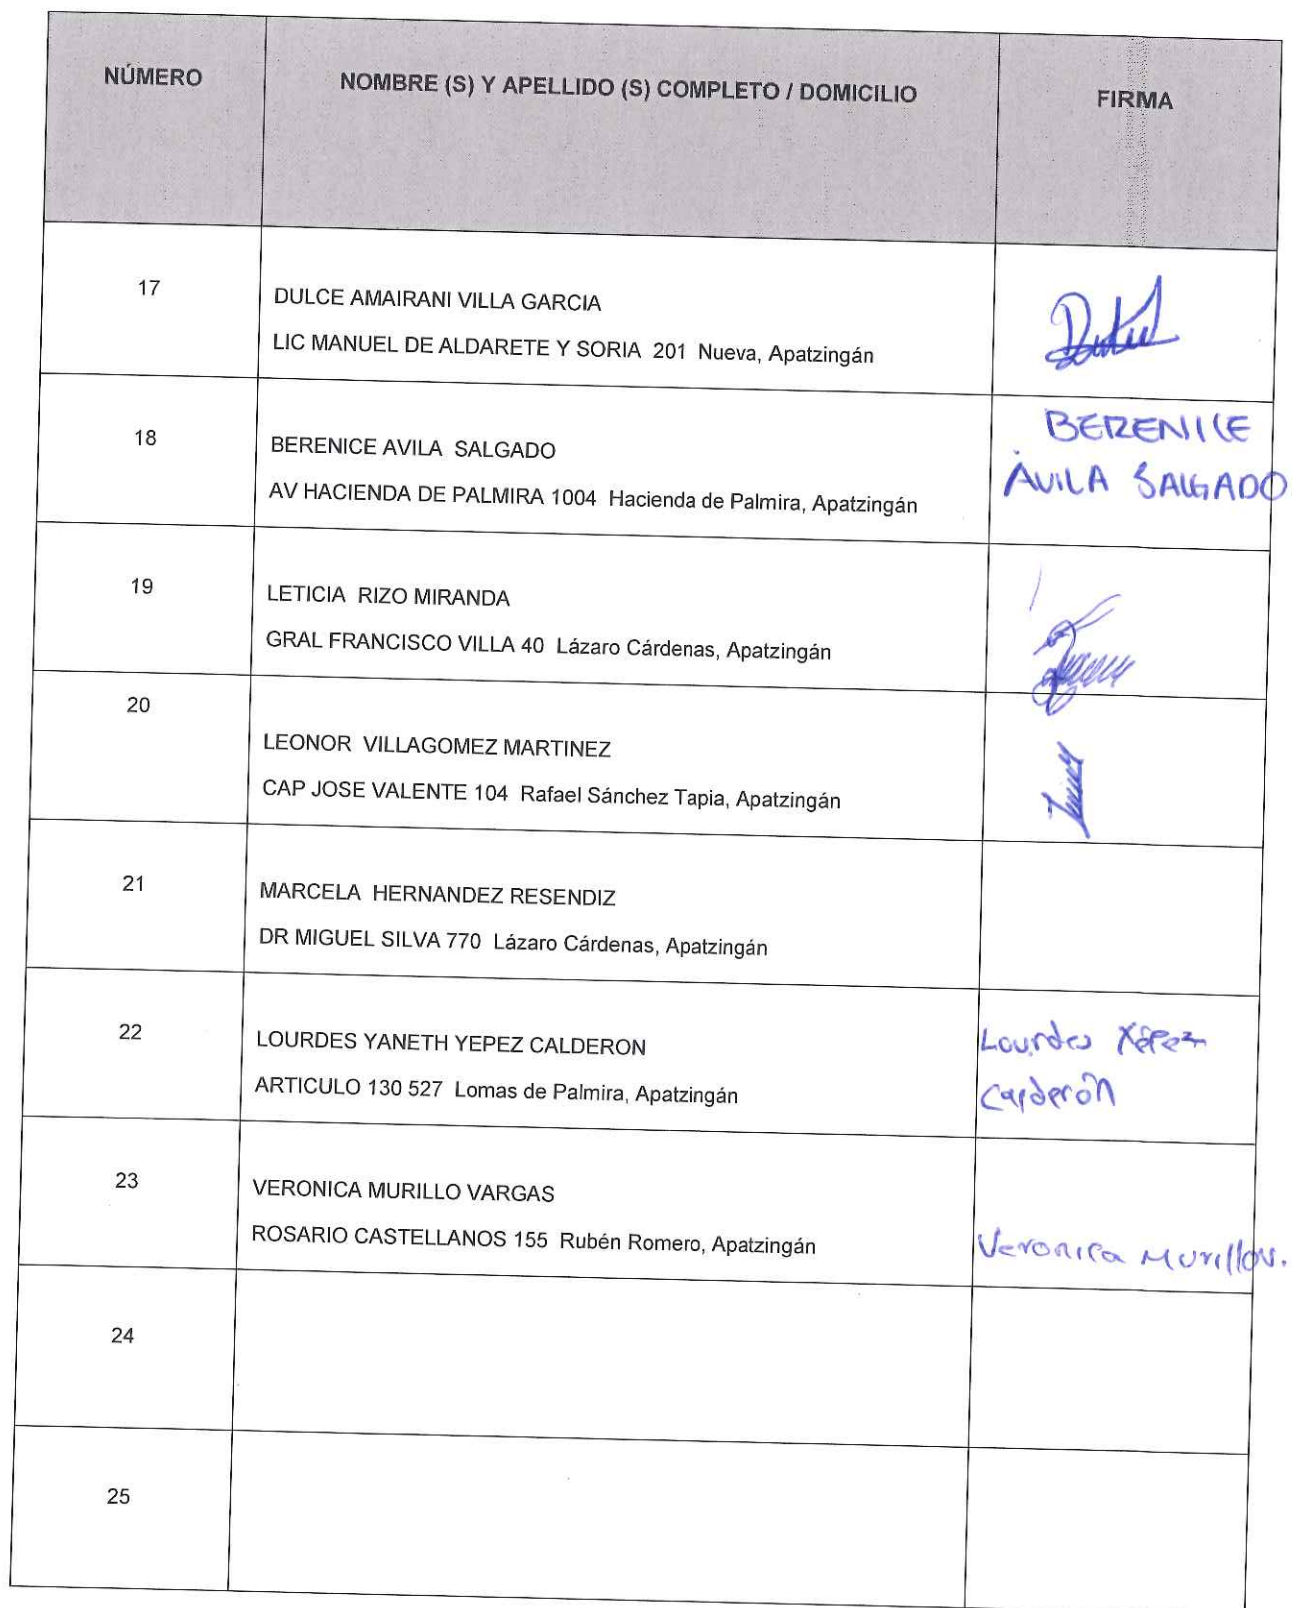 NÚMERO
NOMBRE (S) Y APELLIDO (S) COMPLETO / DOMICILIO
FIRMA
17
DULCE AMAIRANI VILLA GARCIA
LIC MANUEL DE ALDARETE Y SORIA 201 Nueva, Apatzingán
18
BERENICE AVILA SALGADO
AV HACIENDA DE PALMIRA 1004 Hacienda de Palmira, Apatzingán
BERENICE
AVILA SALGADO
19
LETICIA RIZO MIRANDA
GRAL FRANCISCO VILLA 40 Lázaro Cárdenas, Apatzingán
20
LEONOR VILLAGOMEZ MARTINEZ
CAP JOSE VALENTE 104 Rafael Sánchez Tapia, Apatzingán
21
MARCELA HERNANDEZ RESENDIZ
DR MIGUEL SILVA 770 Lázaro Cárdenas, Apatzingán
22
LOURDES YANETH YEPEZ CALDERON
ARTICULO 130 527 Lomas de Palmira, Apatzingán
Lourdes Yépez
Calderón
23
VERONICA MURILLO VARGAS
ROSARIO CASTELLANOS 155 Rubén Romero, Apatzingán
Veronica Murillo V.
24
25